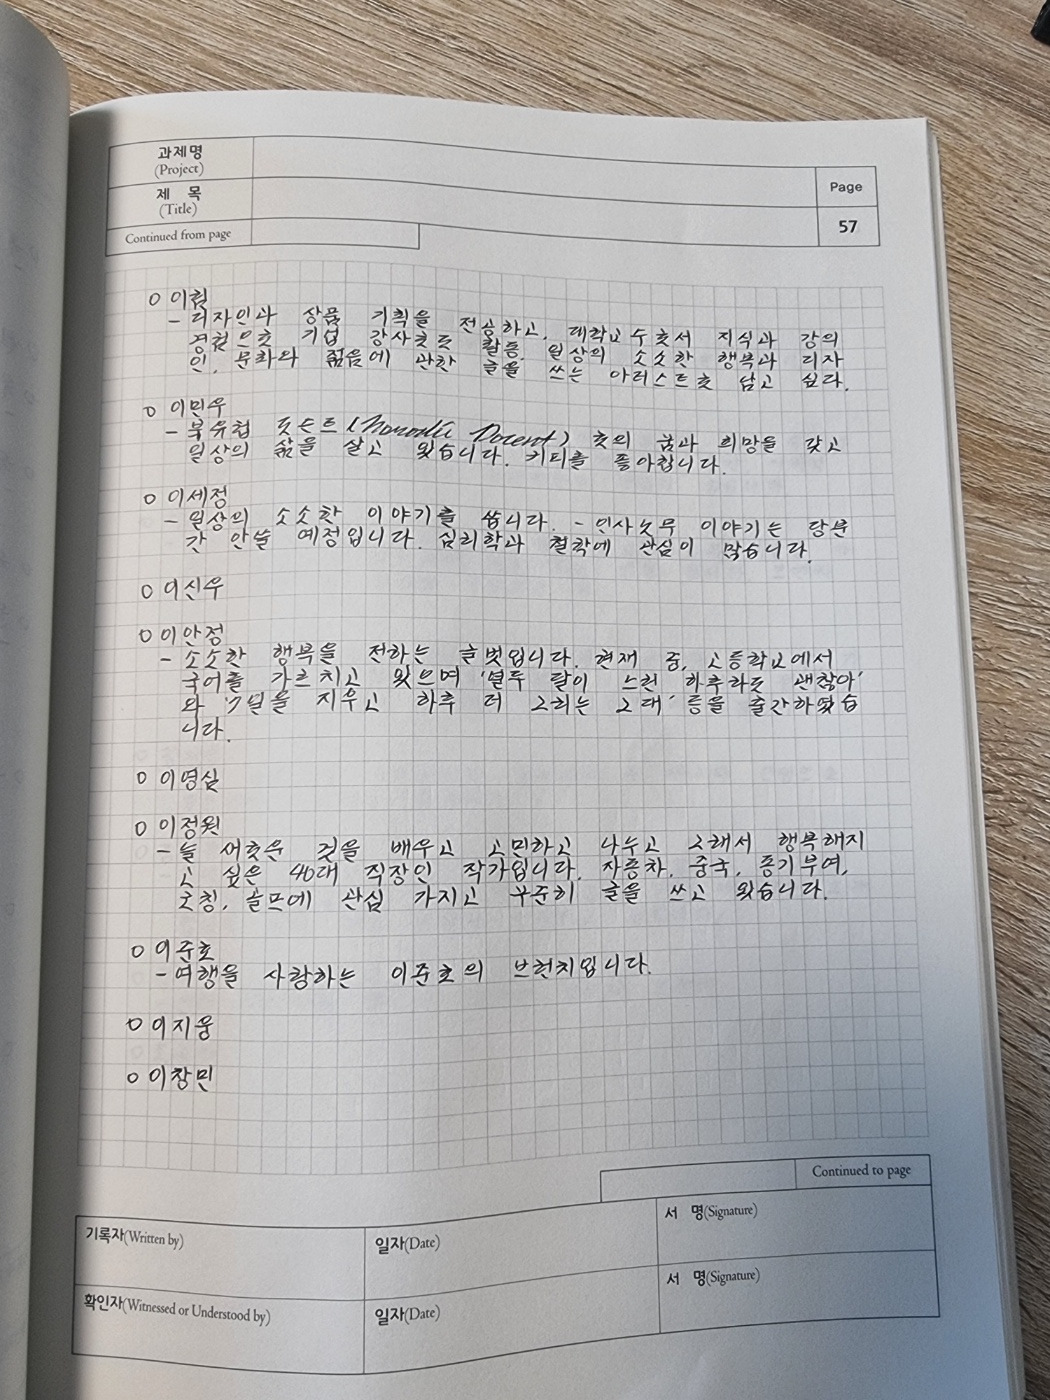 과제명
(Project)
제 목
(Title)
Page
57
Continued from page
○ 이협
- 디자인과 상품 기획을 전공하고, 대학교수로서 지식과 강의
경험으로 기업 강사로도 활동. 일상의 소소한 행복과 디자
인, 문화와 젊음에 관한 글을 쓰는 아티스트로 남고 싶다.
○ 이민우
- 부유첩 도슨트( Docent) 로의 꿈과 희망을 갖고
일상의 삶을 살고 있습니다. 커피를 좋아합니다.
○ 이세정
- 일상의 소소한 이야기를 씁니다. - 인사노무 이야기는 당분
간 안쓸 예정입니다. 심리학과 철학에 관심이 많습니다.
○ 이신우
○ 이안정
- 소소한 행복을 전하는 글벗입니다. 현재 중, 고등학교에서
국어를 가르치고 있으며 '열두 달이 느린 하루라도 괜찮아'
와 '7월을 지우고 하루 더 그리는 그대' 등을 출간하였습
니다.
○ 이영실
○ 이정원
- 늘 새로운 것을 배우고 고민하고 나누고 그래서 행복해지
고 싶은 40대 직장인 작가입니다. 자동차, 중국, 동기부여,
코칭, 골프에 관심 가지고 꾸준히 글을 쓰고 있습니다.
○ 이준호
- 여행을 사랑하는 이준호의 브런치입니다.
○ 이지웅
○ 이창민
Continued to page
기록자(Written by)
일자(Date)
서 명(Signature)
확인자(Witnessed or Understood by)
일자(Date)
서 명(Signature)